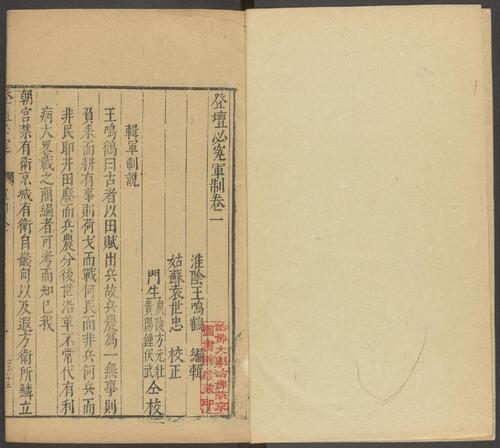 登壇必究軍制卷一
淮陰王鳴鶴 編輯
姑蘇袁世忠 校正
門生
方元壯
貴陽鍾伏武
仝校
輯軍制說
王鳴鶴曰古者以田賦出兵故兵農為一無事則
負耒而耕有事則荷戈而戰何民而非兵何兵而
非民耶井田廢而兵農分後世沿革不常代有利
病大畧載之簡編者可考而知已我
朝宮禁有衛京城有衛自畿甸以及遐方衛所鱗立
哈佛大學哈佛燕京
圖書館珍藏印